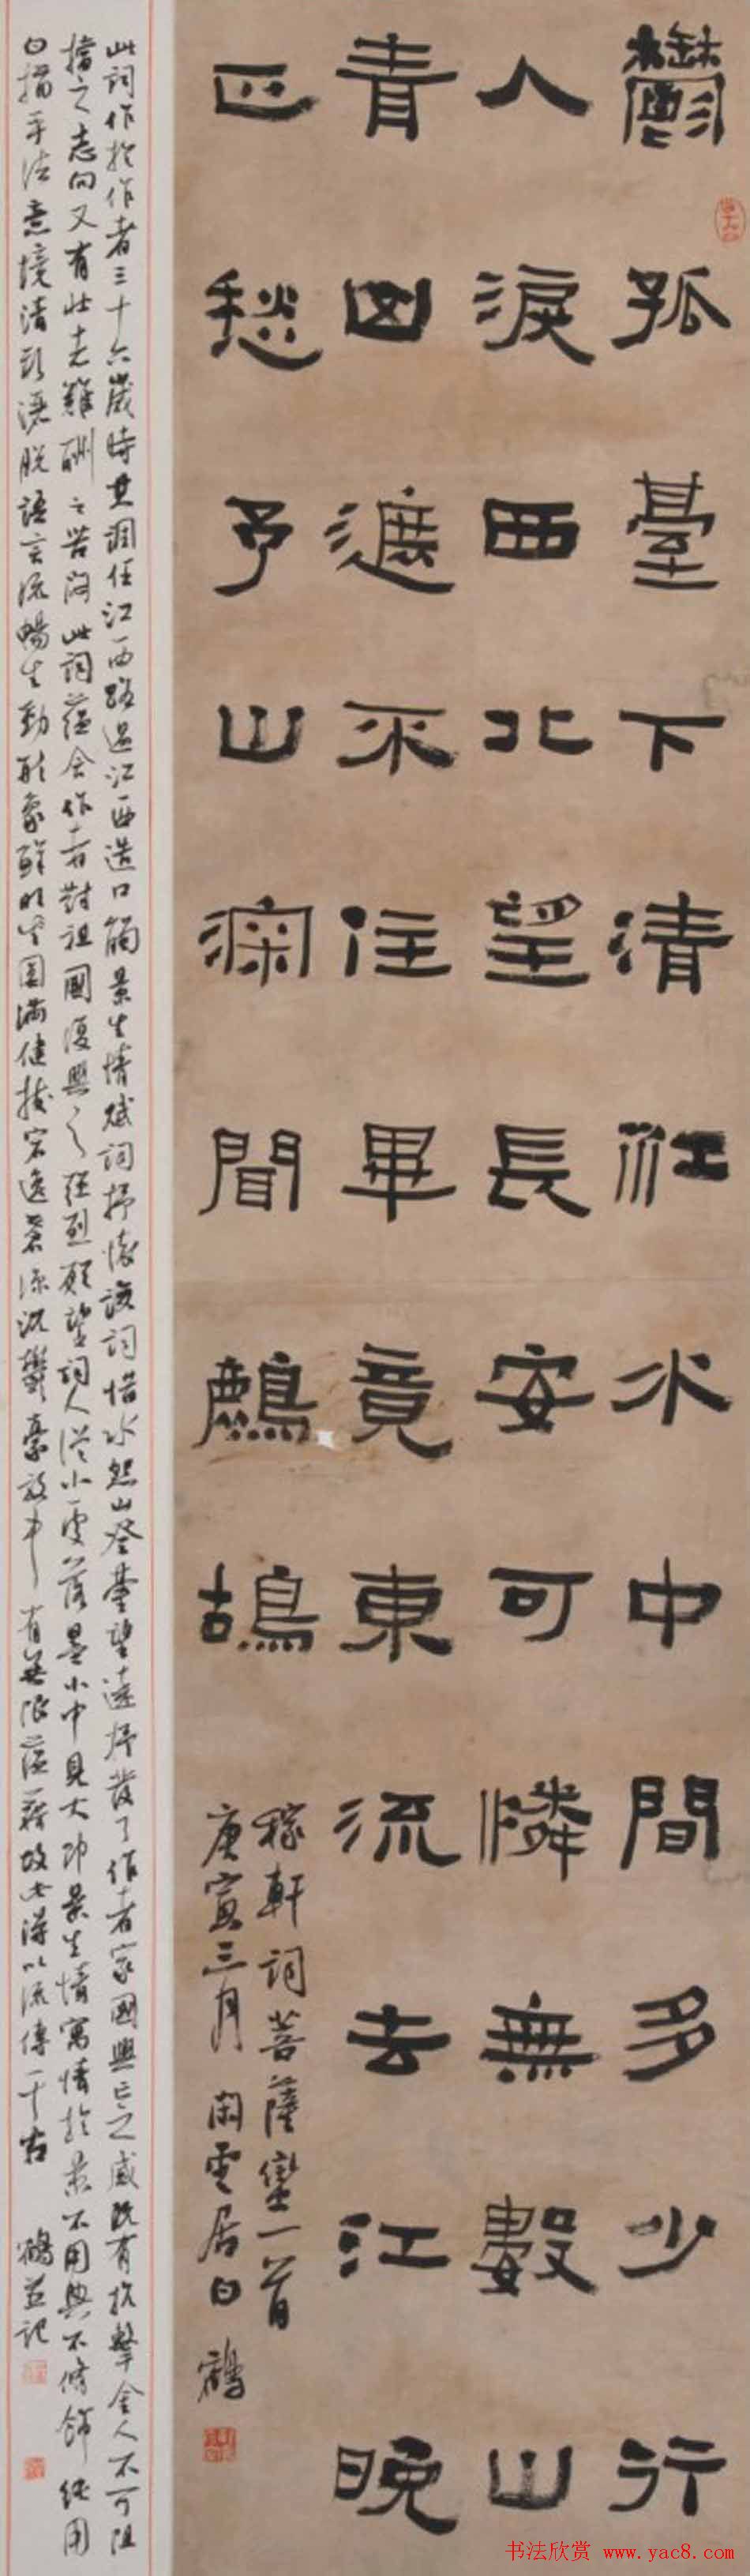 鬱孤臺下清江水中間多少行
人淚西北望長安可憐無數山
青山遮不住畢竟東流去江晚
正愁予山深聞鷓鴣
稼軒詞菩薩蠻一首
庚寅三月 閑雲居白鶴
此詞作於作者三十六歲時其調任江西路過江西造口觸景生情賦詞抒懷該詞惜水怨山登臺望遠抒發了作者家國興亡之感既有抗擊金人不可阻
擋之志向又有壯志難酬之苦悶此詞蘊含作者對祖國復興之強烈願望詞人從小處落墨小中見大即景生情寓情於景不用典不修飾純用
白描手法意境清新灑脫語言流暢生動形象鮮明圓滿健拔宕逸蒼涼沉鬱豪放中有無限蘊藉故此得以流傳千古 鶴並記
书法欣赏 www.yac8.com